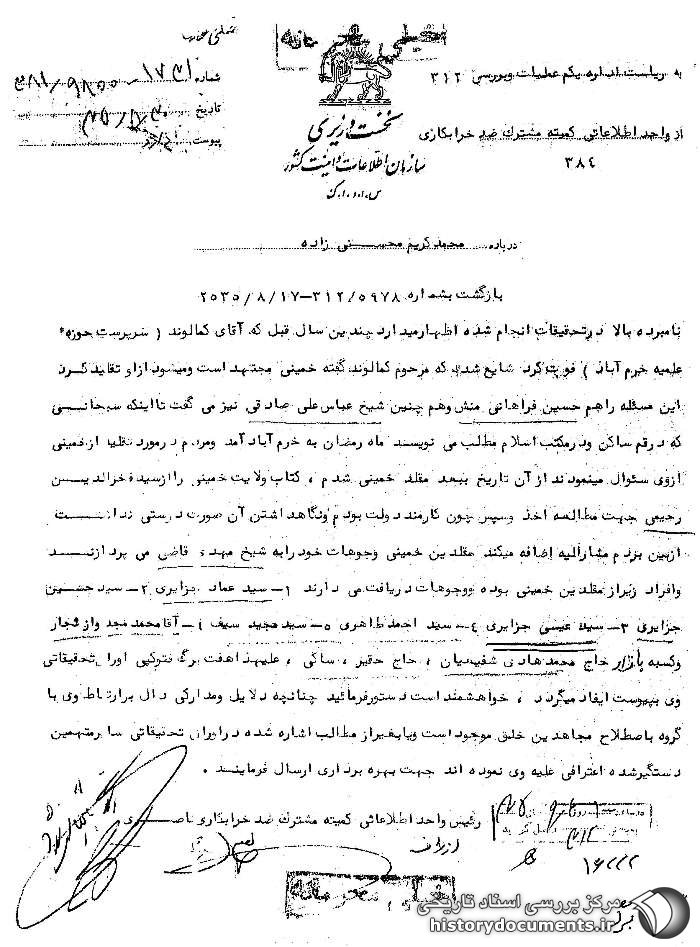 خیلی محرمانه
به ریاست اداره یکم عملیات وبررسی ۳۱۲
از واحد اطلاعاتی کمیته مشترک ضد خرابکاری
۳۸٤
شماره
تاریخ
پیوست
نخست وزیری
سازمان اطلاعات و امنیت کشور
س.ا.و.ا.ک
درباره محمد کریم محسنی زاده
بازگشت بشماره ۳۱۲/۵۹۷۸-۲۵۳۵/۸/۱۷
نامبرده بالا درتحقیقات انجام شده اظهارمیدارد چندین سال قبل که آقای کمالوند ( سرپرست حوزه
علمیه خرم آباد ) فوت کرد شایع شد که مرحوم کمالوند گفته خمینی مجتهد است ومیشود ازاو تقلید کرد
این مسئله راهم حسین فراهانی منش وهم چنین شیخ عباسعلی صادقی نیز می گفت تااینکه سبحانی
که درقم ساکن ودرمکتب اسلام مطلب می نویسند ماه رمضان به خرم آباد آمد ومردم درمورد تقلید ازخمینی
ازوی سئوال مینمودند از آن تاریخ ببعد مقلد خمینی شدم ، کتاب ولایت خمینی را ازسیدفخرالدیسن
رحیمی جهت مطالعه اخذ وسپس چون کارمند دولت بودم ونگاهداشتن آن صورت درستی نداشت
ازبین بردم مشارالیه اضافه میکند مقلدین خمینی وجوهات خودرابه شیخ مهدی قاضی می پردازنسد
وافراد زیراز مقلدین خمینی بوده ووجوهات دریافت می دارند ۱- سید عماد جزایری ۲- سید حسین
جزایری ۳- سید عیسی جزایری ٤- سید احمد طاهری ۵- سید مجید سیف ۶- آقامحمد مجد وازتجار
وکسبه بازار حاج محمدهادی شفیعیان ، حاج حقیر ، ساکی ، علیهذا هفت برگ فتوکپی اوراق تحقیقاتی
وی بپیوست ایفاد میگردد ، خواهشمند است دستورفرمائید چنانچه دلایل ومدارکی دال برارتباط وی با
گروه باصطلاح مجاهدین خلق موجود است ویابغیراز مطالب اشاره شده دراوراق تحقیقاتی سایرمتهمین
دستگیرشده اعترافی علیه وی نموده اند جهت بهره برداری ارسال فرماینسد .
رئیس واحد اطلاعاتی کمیته مشترک ضد خرابکاری ناصری
از طرف
خیلی محرمانه
مرکز بررسی اسناد تاریخی
historydocuments.ir